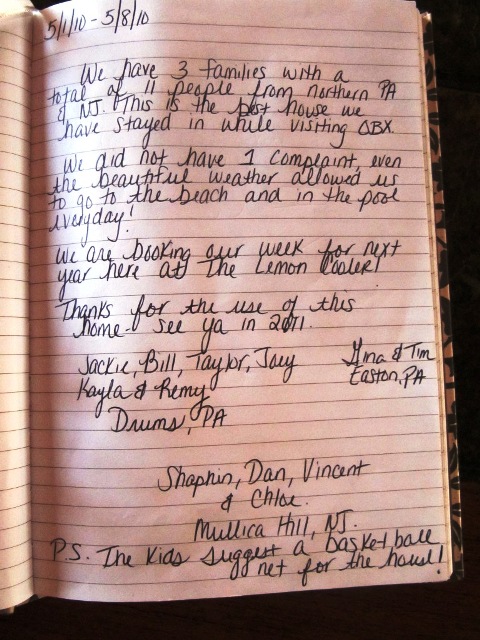 5/1/10 - 5/8/10
We have 3 families with a
total of 11 people from northern PA
& NJ. This is the best house we
have stayed in while visiting OBX.
We did not have 1 complaint, even
the beautiful weather allowed us
to go to the beach and in the pool
everyday!
We are booking our week for next
year here at The Lemon Cooler!
Thanks for the use of this
home - see ya in 2011.
Jackie, Bill, Taylor, Joey
Kayla & Remy
Drums, PA
Gina & Tim
Easton, PA
Dan, Vincent
& Chloe.
Mullica Hill, NJ.
P.S. The Kids suggest a basketball
net for the house!